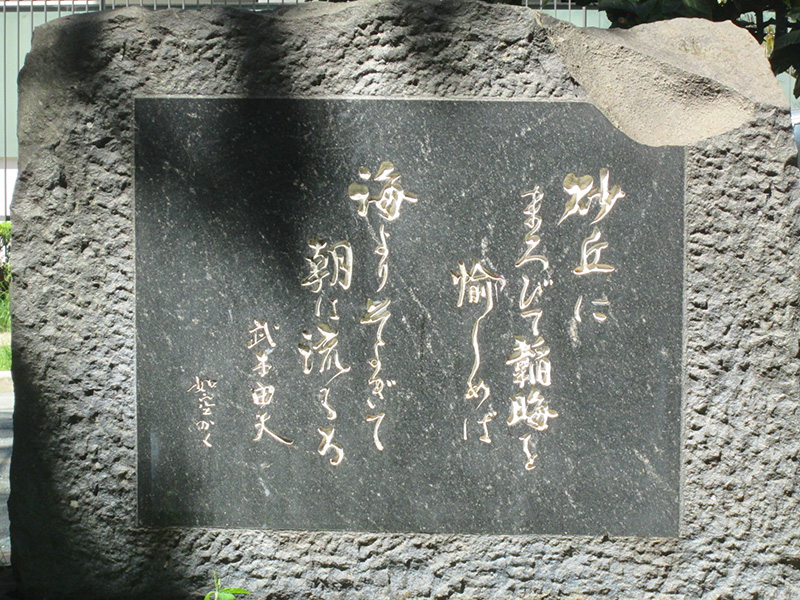 砂丘に
まろびて韜晦を
愉しめば
海よりそよぎて
朝は流るる
武本由夫
如空かく